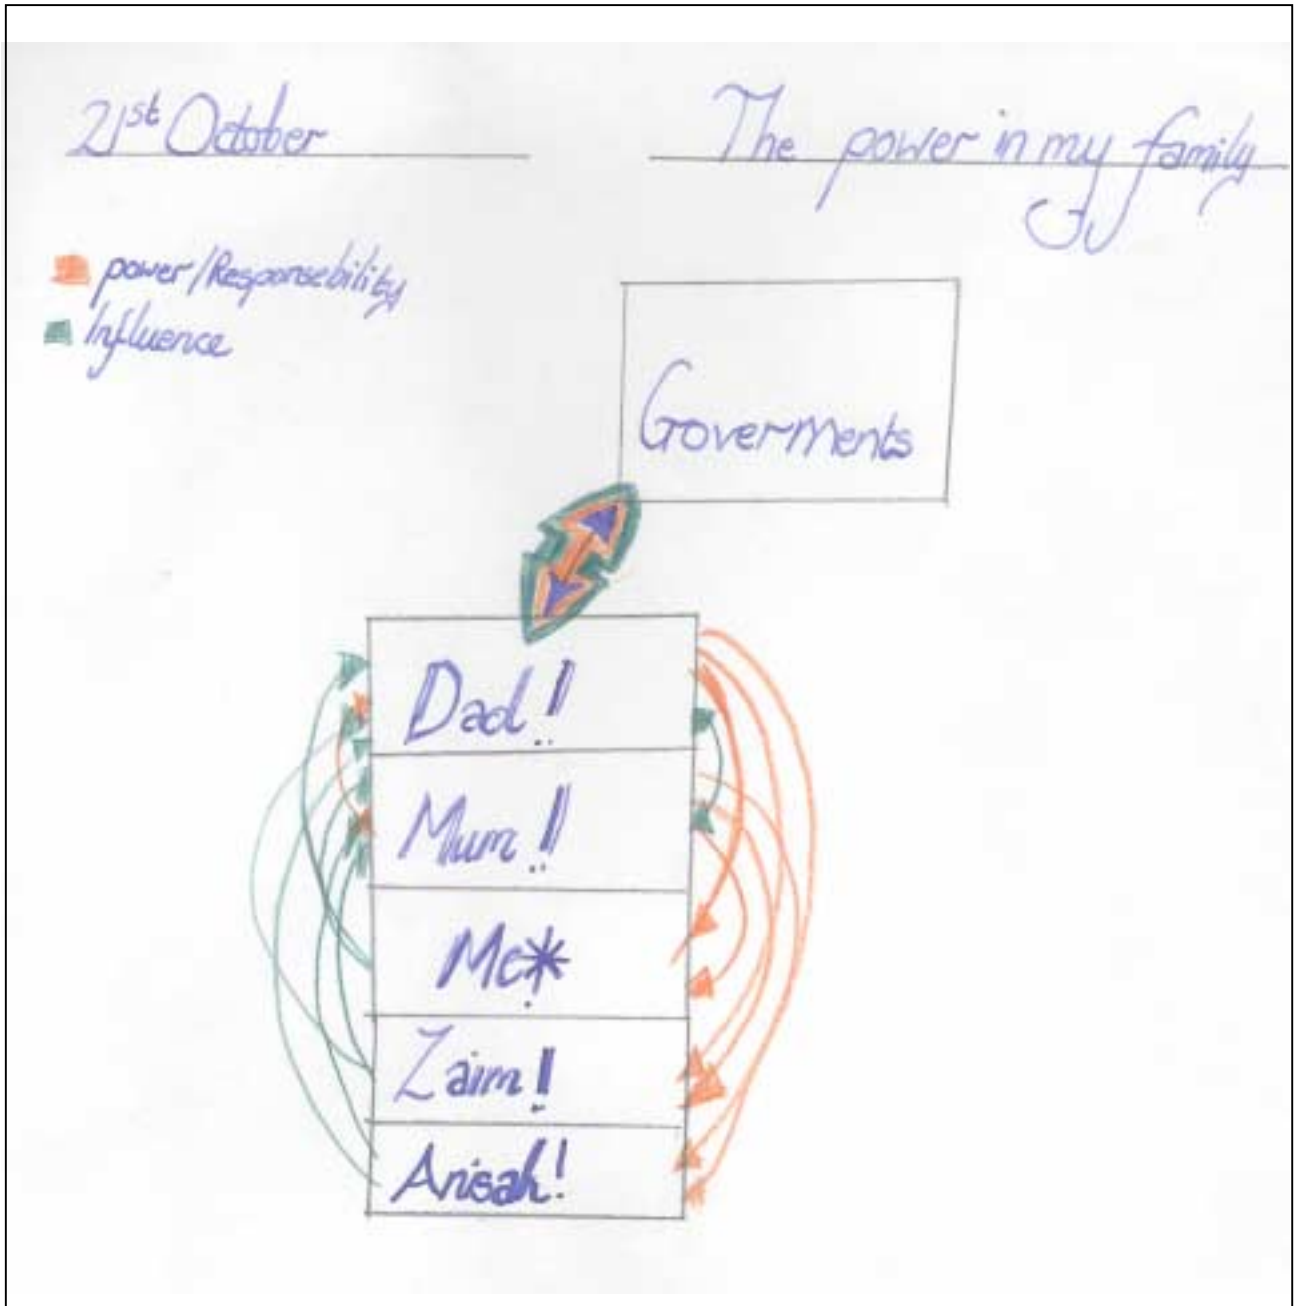 21st October
The power in my family
power/Responsebility
Influence
Goverments
Dad!
Mum!
Me*
Zaim!
Anisah!